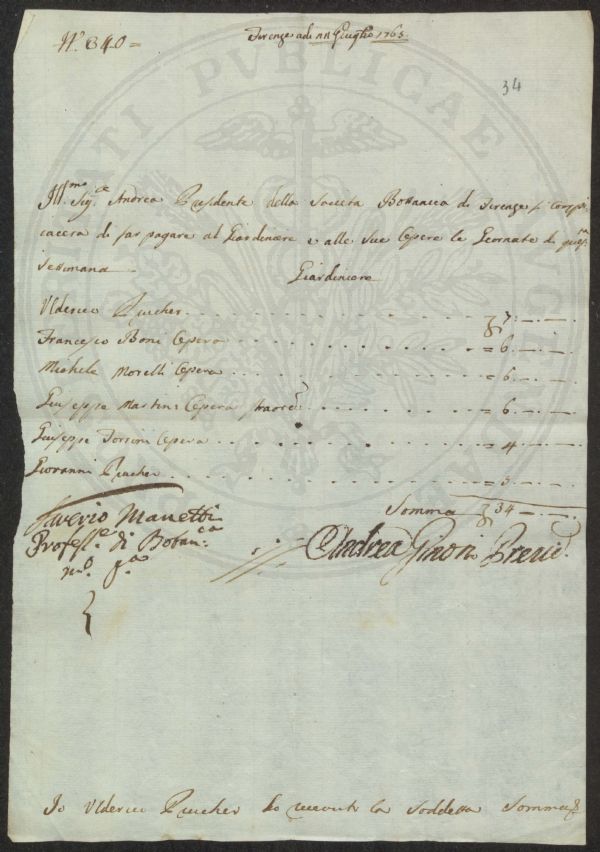 N.° 340 =
Firenze adì 11 Giuglio 1763
34
Ill.mo Sig.re Andrea Presidente della Società Bottanica di Firenze si
cacera di far pagare al Giardiniere e alle sue Opere le Giornate di
settimana
Giardiniere
Ulderico Prucher . . . 7.—.—
Francesco Boni Opera . . . = 6.—.—
Michele Morelli Opera . . . = 6.—.—
Giuseppe Martini Opera straord. . . . = 6.—.—
Giuseppe Opera . . . = 4.—.—
Giovanni Prucher . . . 5.—.—
Somma 34.—.—
Saverio Manetti
Profess.e di Botan.ca
m.o p.a
Andrea Ginori Presid.
Io Ulderico Prucher ho ricevuto la soddetta Somma
PUBLICAE